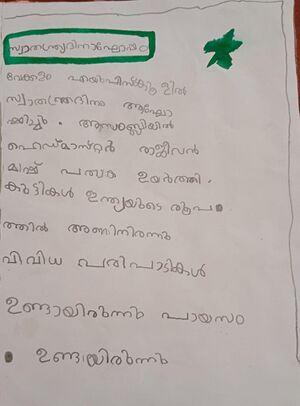 സ്വാതന്ത്ര്യദിനാഘോഷം
വേക്കളം എയുപിസ്കൂളിൽ
സ്വാതന്ത്രദിനം ആഘോ
ഷിച്ചു. അസംബ്ലിയിൽ
ഹെഡ്മാസ്റ്റർ രാജീവൻ
മാഷ് പതാക ഉയർത്തി.
കുട്ടികൾ ഇന്ത്യയുടെ രൂപ
ത്തിൽ അണിനിരന്നു
വിവിധ പരിപാടികൾ
ഉണ്ടായിരുന്നു പായസം
ഉണ്ടായിരുന്നു